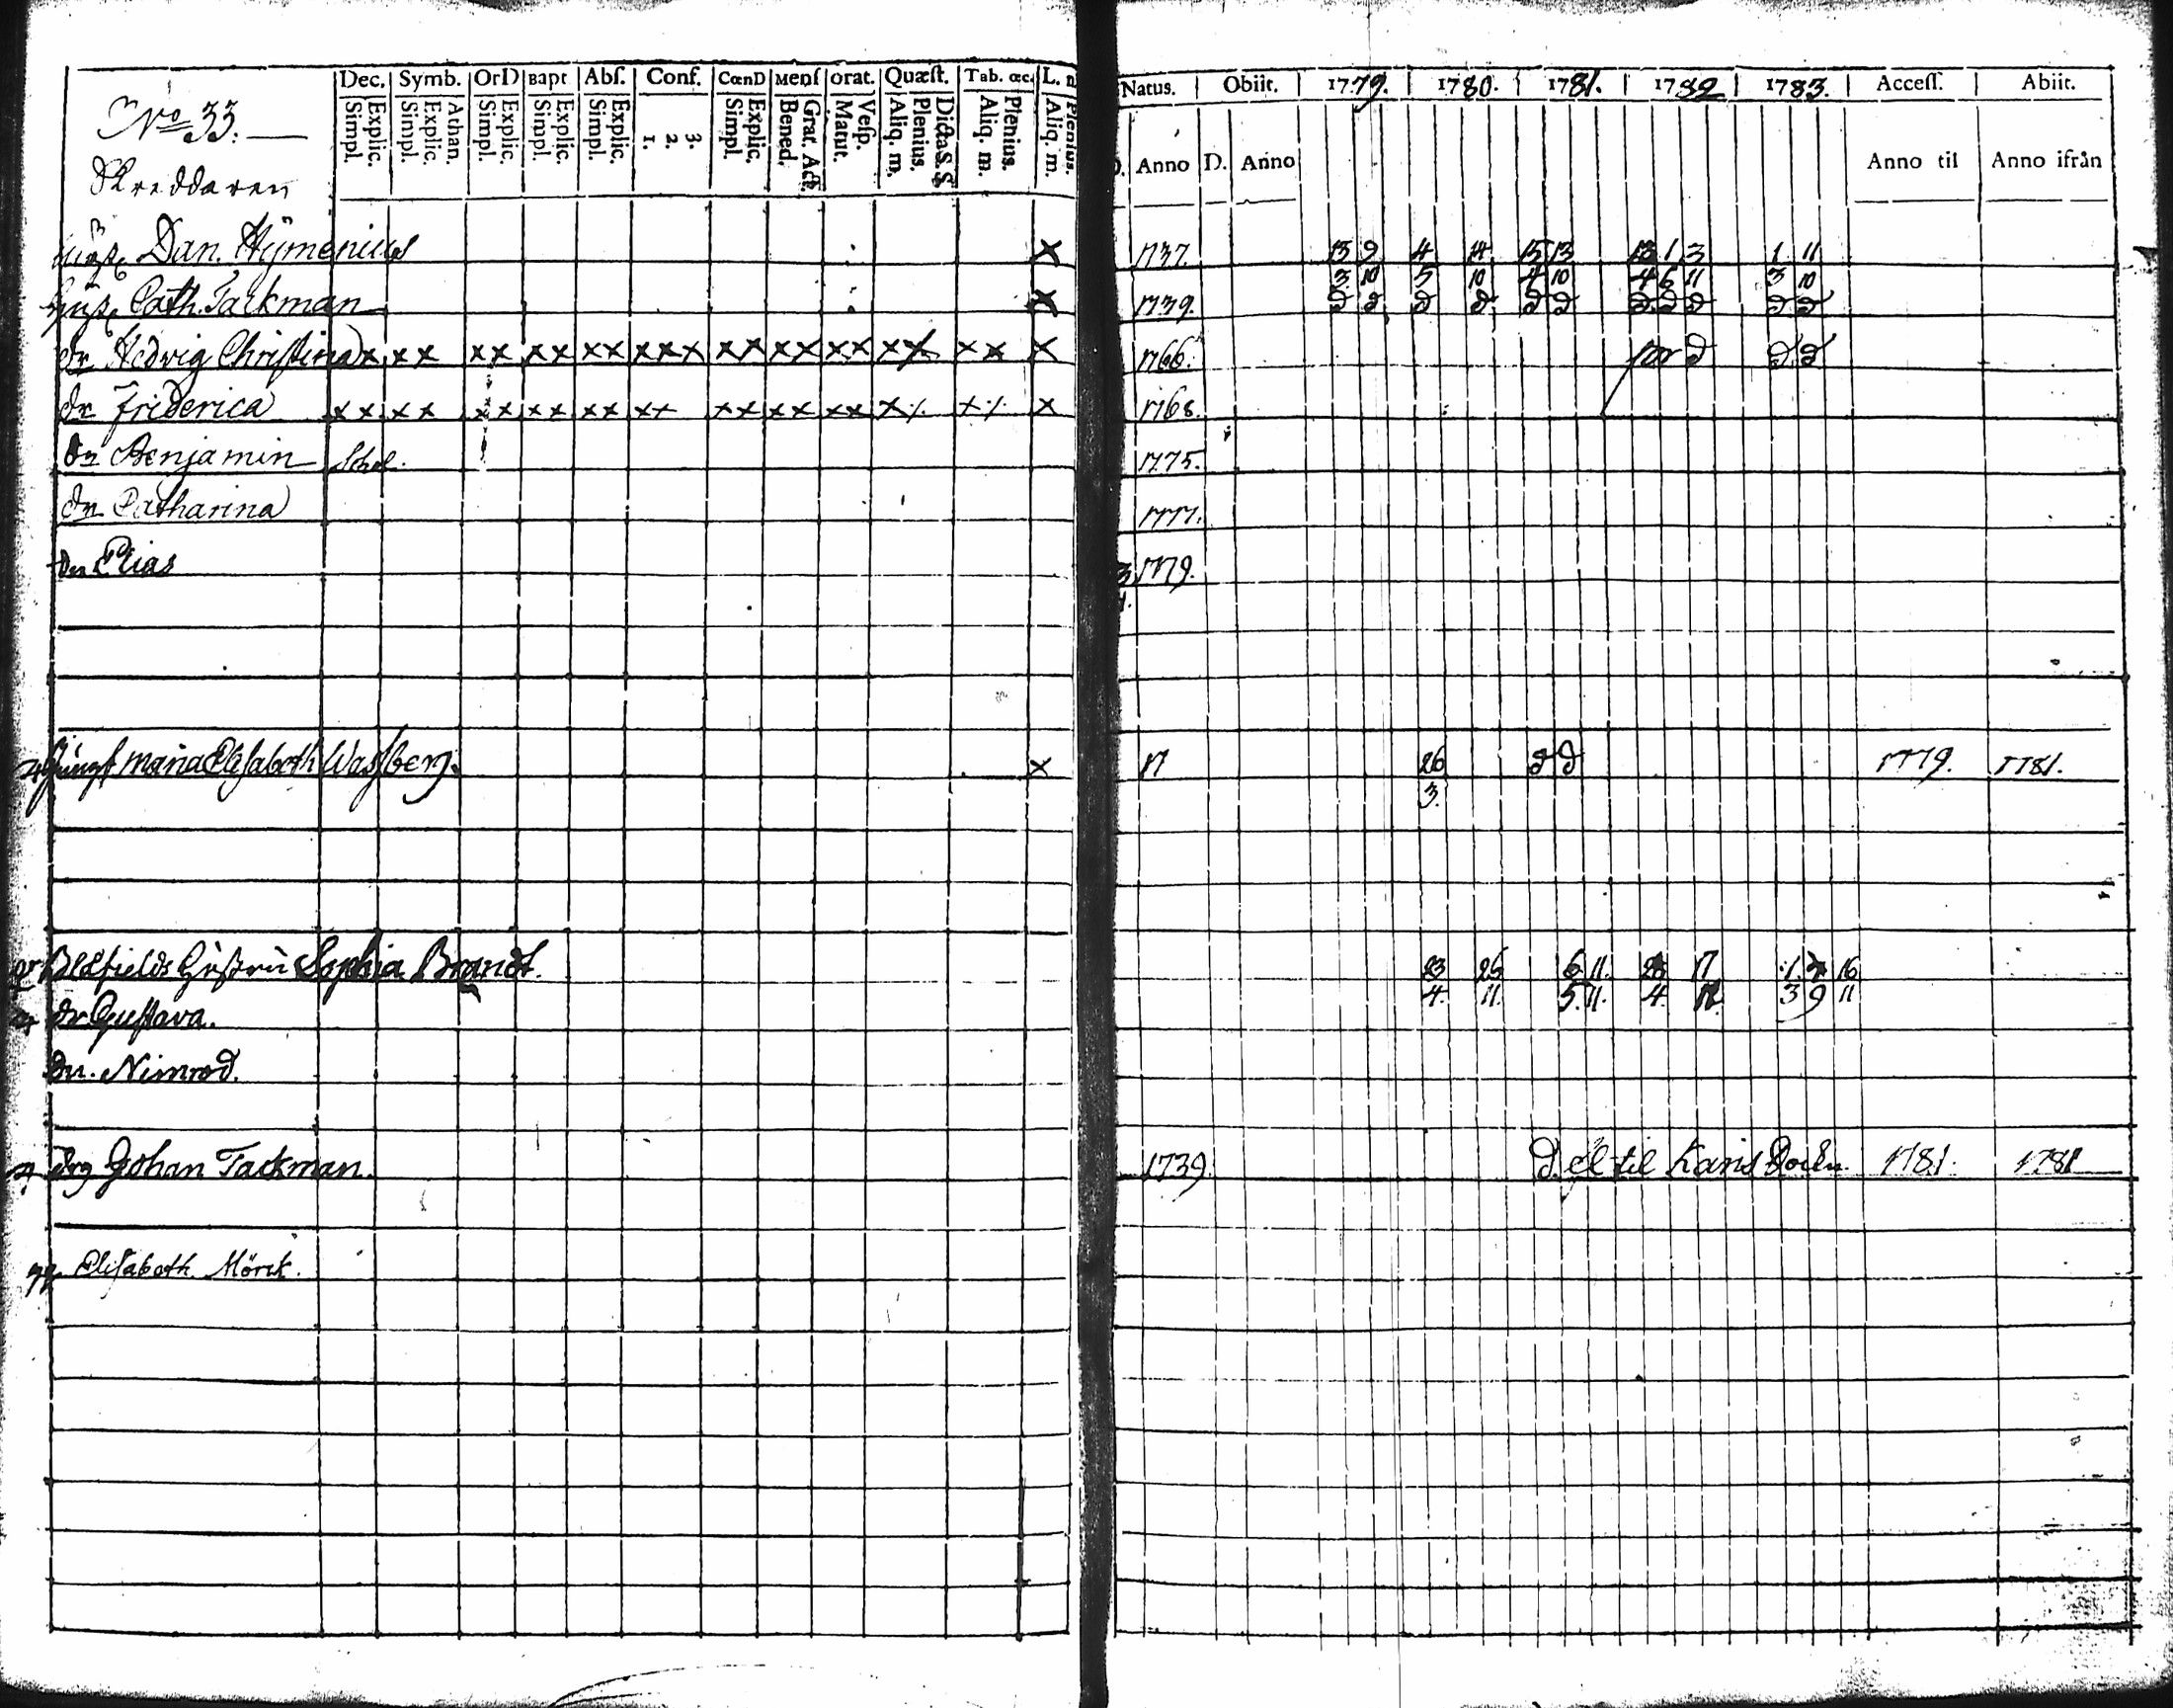 Dec. Symb. OrD Bapt Abſ. Conf. CœnD Menſ Orat. Quæſt. Tab. œc. L. Natus. Obiit. 1779. 1780. 1781. 1782 1783. Acceſſ. Abiit.
Simpl. Explic. Simpl. Explic. Athan. Simpl. Explic. Simpl. Explic. Simpl. Explic. 1. 2. 3. Simpl. Explic. Bened. Grat. Act. Matut. Veſp. Aliq. m. Plenius. Dicta S.S. Aliq. m. Plenius. Aliq. m. Plenius. Anno D. Anno Anno til Anno ifrån
No 33.
Skreddaren
Dan. Hÿmenius x 1737. 13 9 4 14 15 13 13 1 3 1 11
3. 10 5 10 4 10 4 6 11 3 10
Cath. Tackman x 1739. d d d d d d d d d d d
dr Hedvig Christina x x x x x x x x x x x x x x x x x x x x x x x x x 1766. d d d
dr Friderica x x x x x x x x x x x x x x x x x x x ⁒ x ⁒ x 1768.
Sn Benjamin Schol. 1775.
dr Catharina 1777.
Sn Elias 3 1779.
4.
Jungf Maria Elisabeth Wassberg. x 17 26 d d 1779. 1781.
3.
Hustru Sophia Brandt. 23 26 6 11. 17 1. 16
4. 11. 5. 11. 4. 3 9 11
dr Gustava.
Sn. Nimrod.
Johan Tackman. 1739. til Karis 1781. 1781
Elisabeth Mörck.